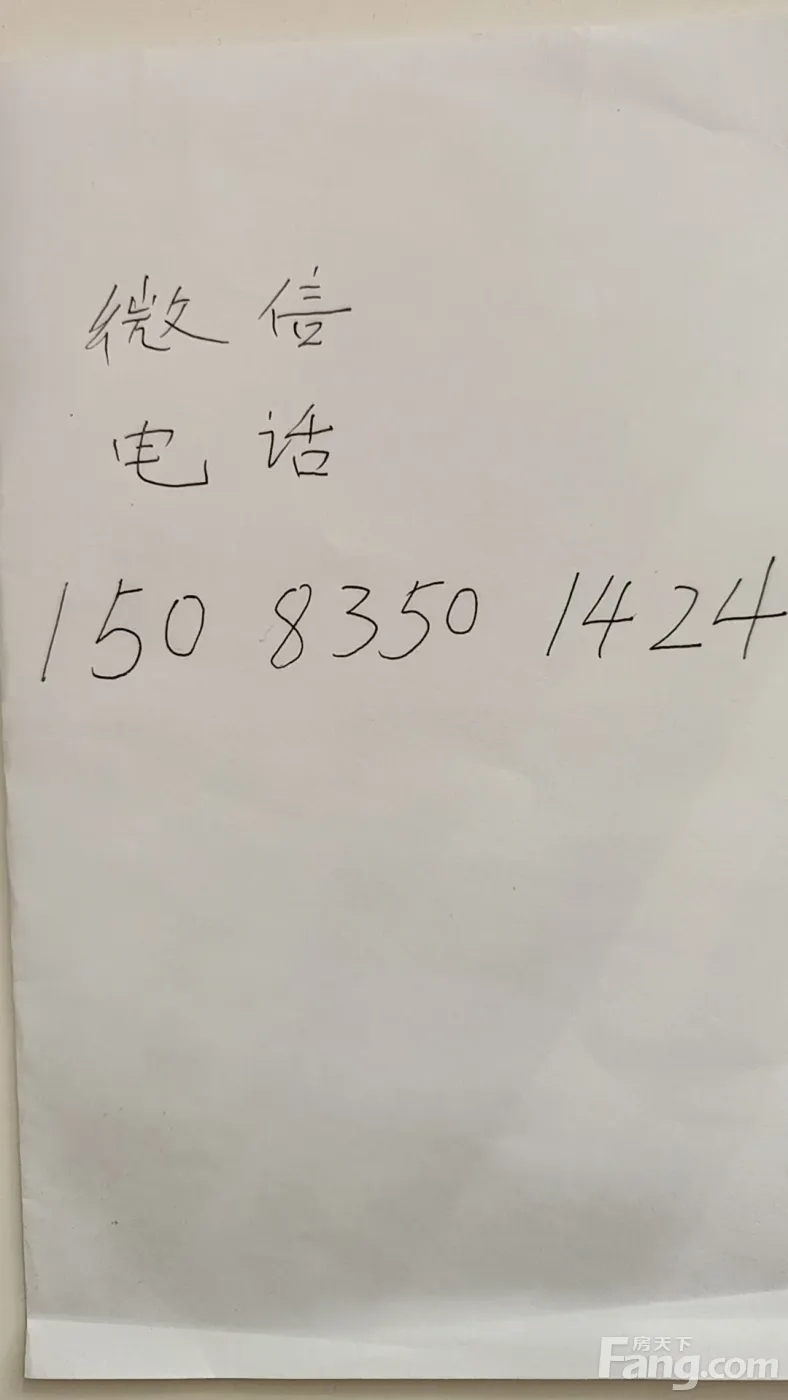 微信
电话
150 8350 1424
房天下
Fang.com